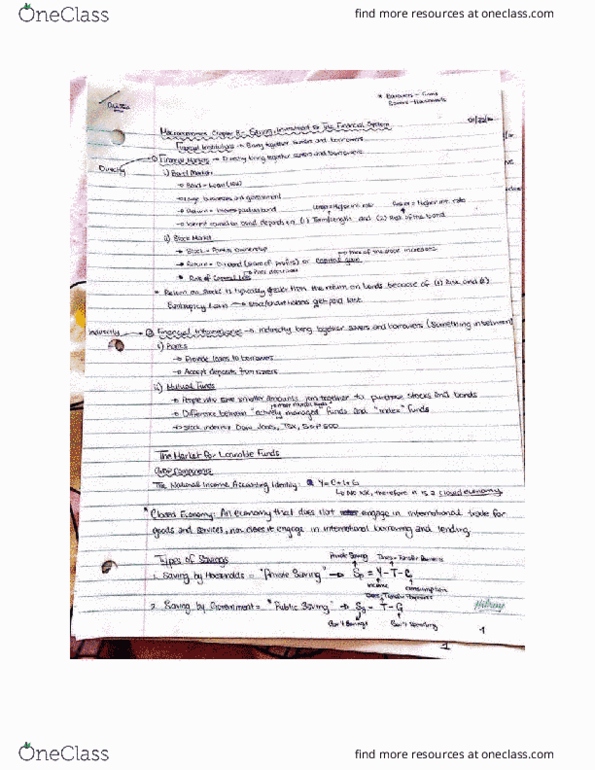 OneClass
find more resources at oneclass.com
* Borrowers - Firms
Quiz
Macroeconomics Chapter 8 - Saving, Investment & The Financial System
Financial Institutions → Bring together savers and borrowers
① Financial Markets → Directly bring together savers and borrowers
Directly
i) Bond Market
→ Bond = Loan (IOU)
→ Large businesses and government
→ Return = Interest paid on bond
→ Interest earned on bond depends on (1) Term/length and (2) Risk of the bond
ii) Stock Market
→ Stock = Partial ownership
→ Price of the stock increases
→ Return = Dividend (share of profits) or Capital gain
→ Price decreases
→ Risk of Capital Loss
* Return on stocks is typically greater than the return on bonds because of (1) Risk and (2)
Bankruptcy Laws → get paid last
Indirectly
② Financial Intermediaries → indirectly bring together savers and borrowers (Something in between)
i) Banks
→ Provide loans to borrowers
→ Accept deposits from savers
ii) Mutual Funds
→ People who save smaller amounts join together to purchase stocks and bonds
→ Difference between "actively managed" funds and "index" funds
→ Stock indexes: Dow Jones, TSX, S&P 500
The Market for Loanable Funds
GDP Components
The National Income Accounting Identity: Y = C + I + G
↳ No NX, therefore it is a closed economy
* Closed Economy: An economy that does not engage in international trade for
goods and services, nor does it engage in international borrowing and lending
Types of Savings
Private Saving
1. Saving by Households = "Private Saving" → Sp = Y - T - C
Income
Consumption
2. Saving by Government = "Public Saving" → Sg = T - G
Gov't Savings
Gov't Spending
1
1
OneClass
find more resources at oneclass.com